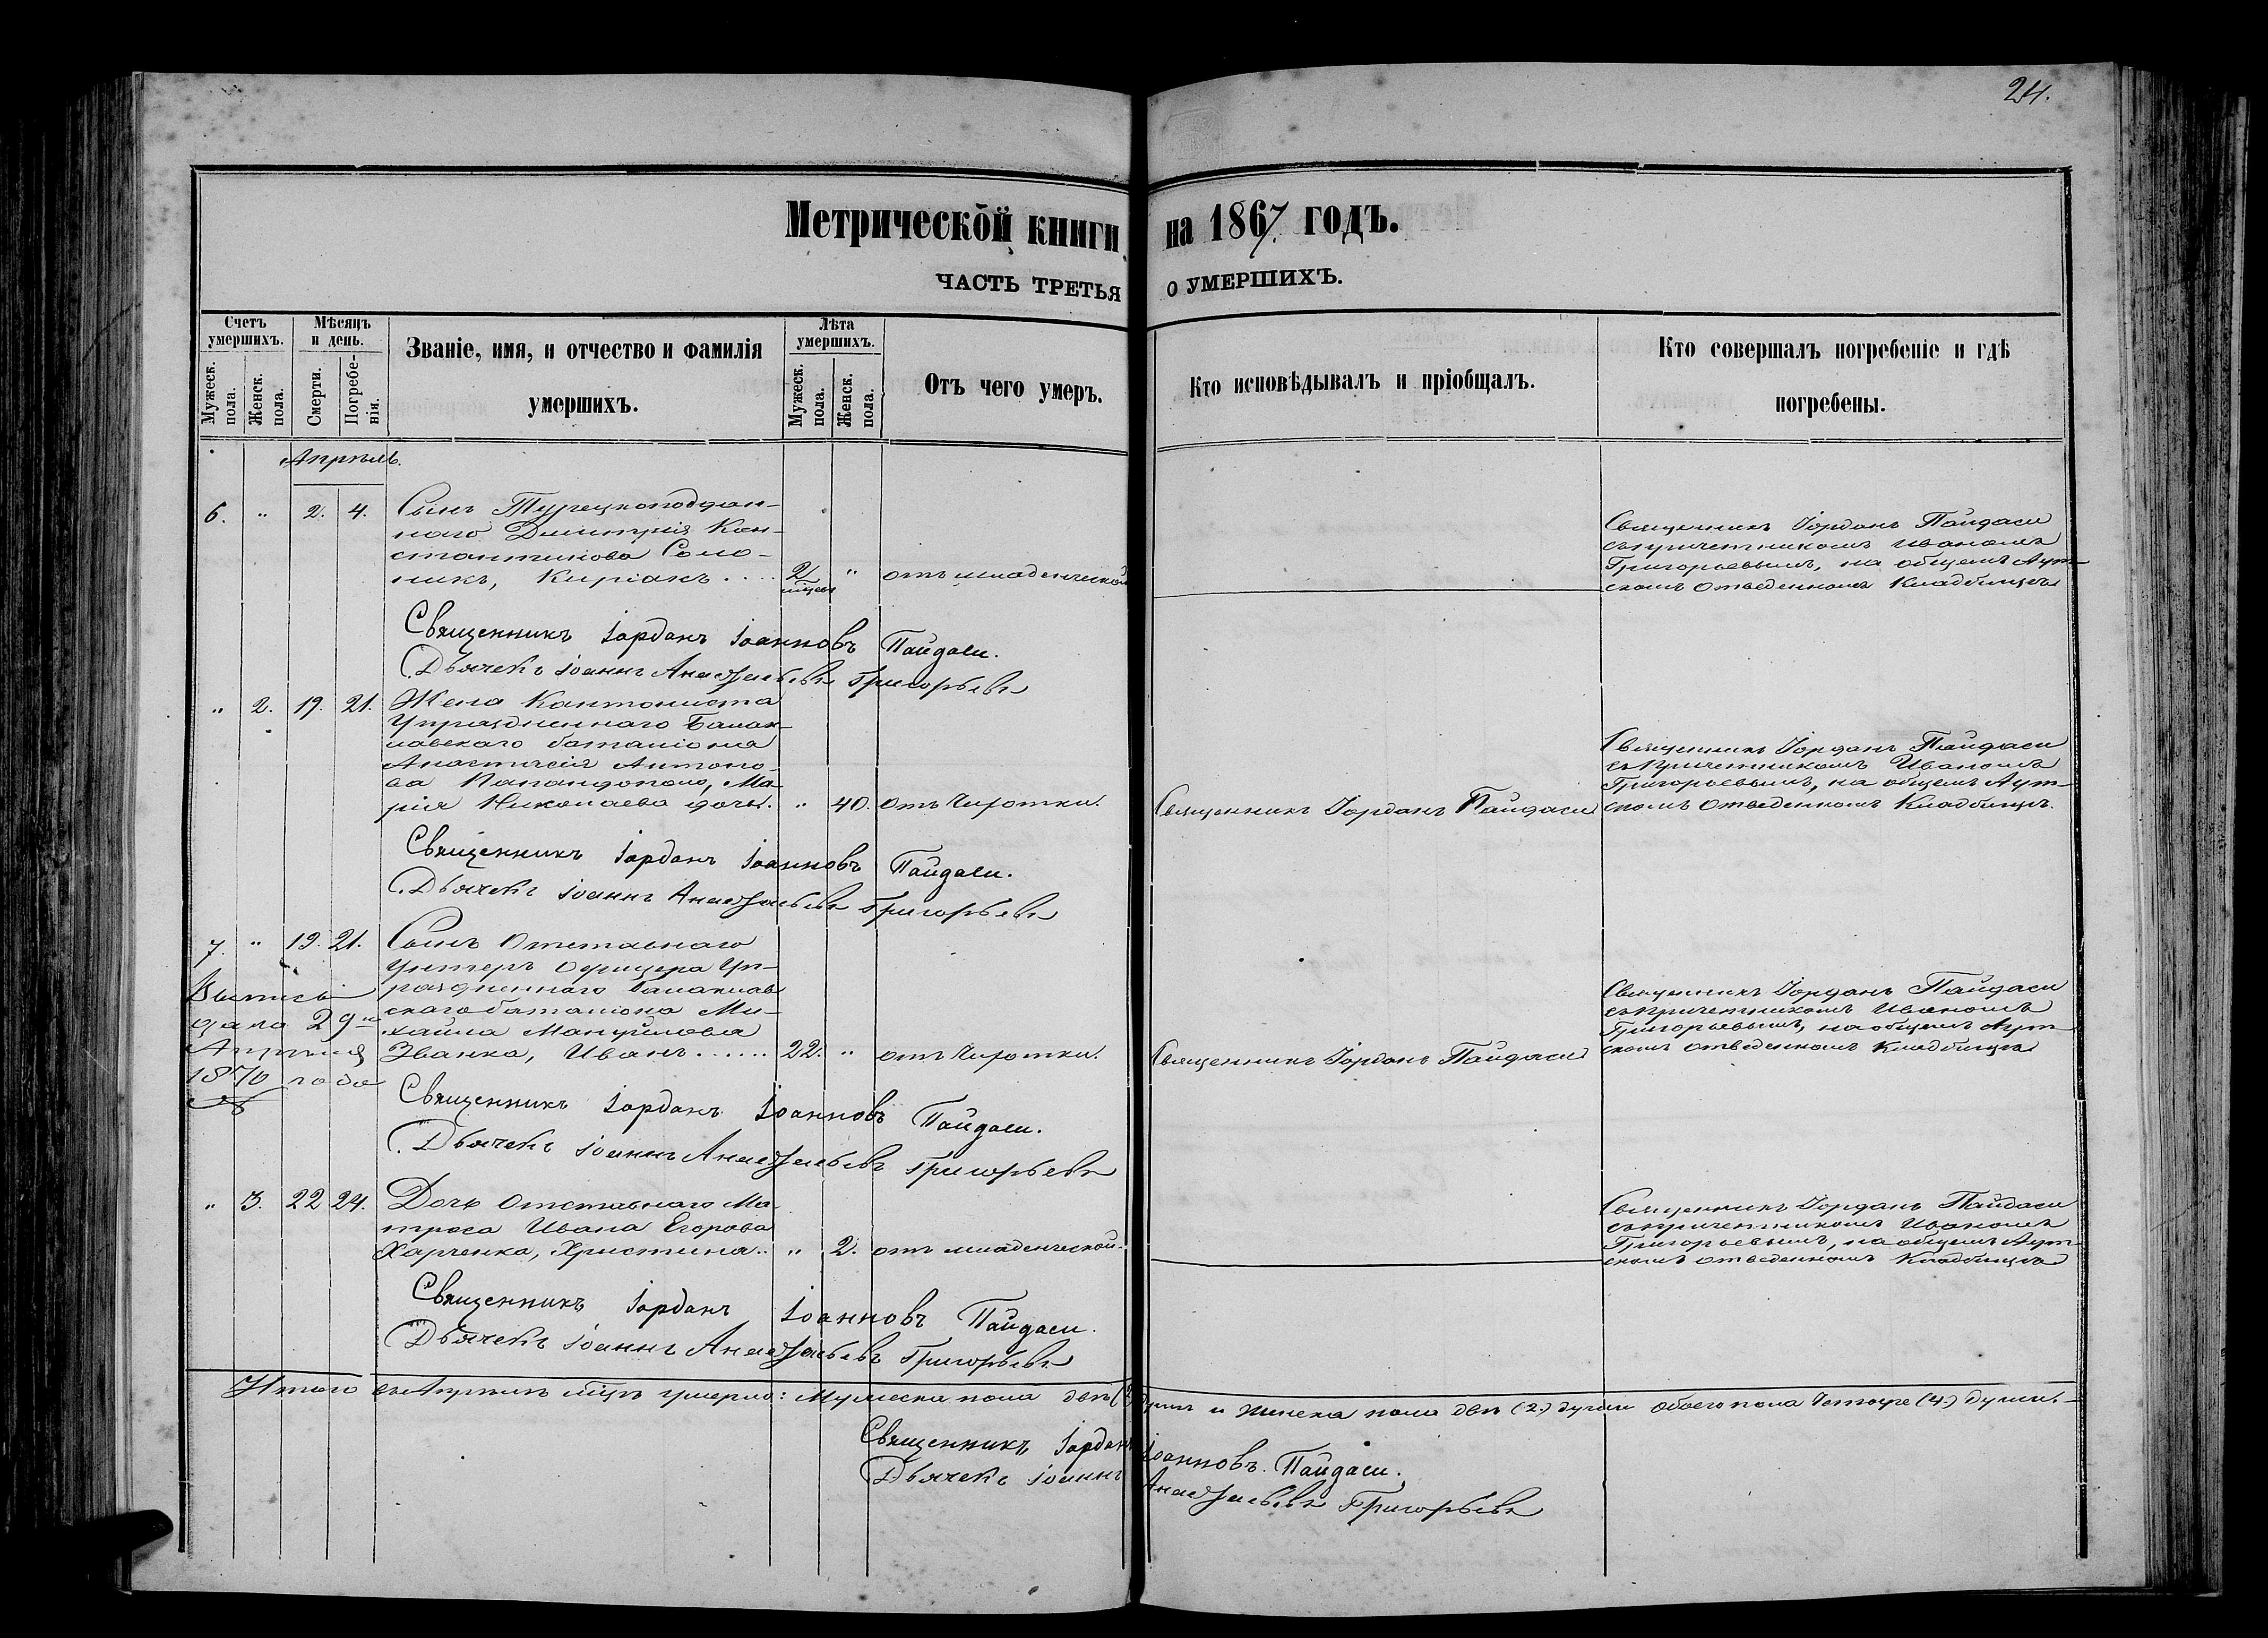 24.
Метрической книги на 1867 годъ.
ЧАСТЬ ТРЕТЬЯ О УМЕРШИХЪ.
Счетъ умершихъ.
Мужеск. пола.
Женск. пола.
Мѣсяцъ и день.
Смерти.
Погребе-
нія.
Званіе, имя, и отчество и фамилія
умершихъ.
Лѣта умершихъ.
Мужеск. пола.
Женск. пола.
Отъ чего умеръ.
Кто исповѣдывалъ и пріобщалъ.
Кто совершалъ погребеніе и гдѣ
погребены.
Апрѣль.
6. " 2. 4.
Сынъ Турецкоподдан-
наго Димитрія Кон-
стантинова Соло-
никъ, Киріакъ....
2 мѣсец "
отъ младенческой
Священникъ Іорданъ Пайдаси
съ причетникомъ Иваномъ
Григорьевымъ, на общемъ Аут-
скомъ отведенномъ Кладбищѣ
Священникъ Іорданъ Іоанновъ Пайдаси.
Дьячекъ Іоаннъ Анастасьевъ Григорьевъ
" 2. 19. 21.
Жена Кантониста
Упраздненнаго Балак-
лавскаго баталіона
Анастасія Антоно-
ва Папандополо, Ма-
рія Николаева дочь.
" 40.
отъ Чахотки.
Священникъ Іорданъ Пайдаси
Священникъ Іорданъ Пайдаси
съ Причетникомъ Иваномъ
Григорьевымъ, на общемъ Аут-
скомъ отведенномъ Кладбищѣ.
Священникъ Іорданъ Іоанновъ Пайдаси.
Дьячекъ Іоаннъ Анастасьевъ Григорьевъ
7. " 19. 21.
Выпись
дана 29го
Апрѣля
1870 года
Сынъ Отставнаго
Унтеръ Офицера Уп-
раздненнаго Балаклав
скаго баталіона Ми-
хаила Мануйлова
Званка, Иванъ......
22. "
отъ Чахотки.
Священникъ Іорданъ Пайдаси
Священникъ Іорданъ Пайдаси
съ причетникомъ Иваномъ
Григорьевымъ, на общемъ Аут-
скомъ отведенномъ Кладбищѣ
Священникъ Іорданъ Іоанновъ Пайдаси.
Дьячекъ Іоаннъ Анастасьевъ Григорьевъ
" 3. 22 24.
Дочь Отставнаго Ма-
троса Ивана Егорова
Харченка, Христина..
" 2.
отъ младенческой.
Священникъ Іорданъ Пайдаси
съ причетникомъ Иваномъ
Григорьевымъ, на общемъ Аут-
скомъ отведенномъ Кладбищѣ
Священникъ Іорданъ Іоанновъ Пайдаси.
Дьячекъ Іоаннъ Анастасьевъ Григорьевъ
Итого въ Апрѣлѣ мѣцѣ умерло: Мужеска пола двѣ (2) души и Женска пола двѣ (2.) души обоего пола Четыре (4.) души.
Священникъ Іорданъ Іоанновъ. Пайдаси.
Дьячекъ Іоаннъ Анастасьевъ Григорьевъ